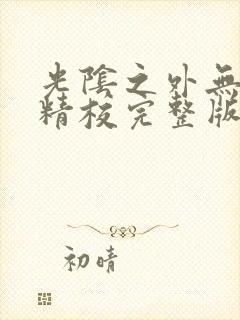 光陰之外無
精校完整版
初晴